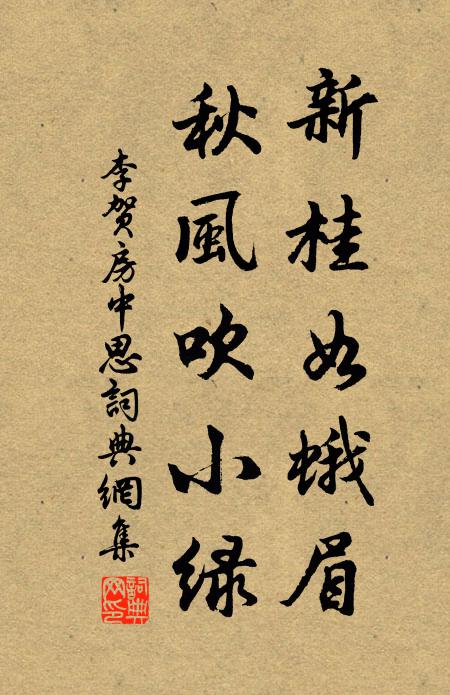 新桂如蛾眉
秋風吹小緑
李賀房中思詞典網集
詞典
网印